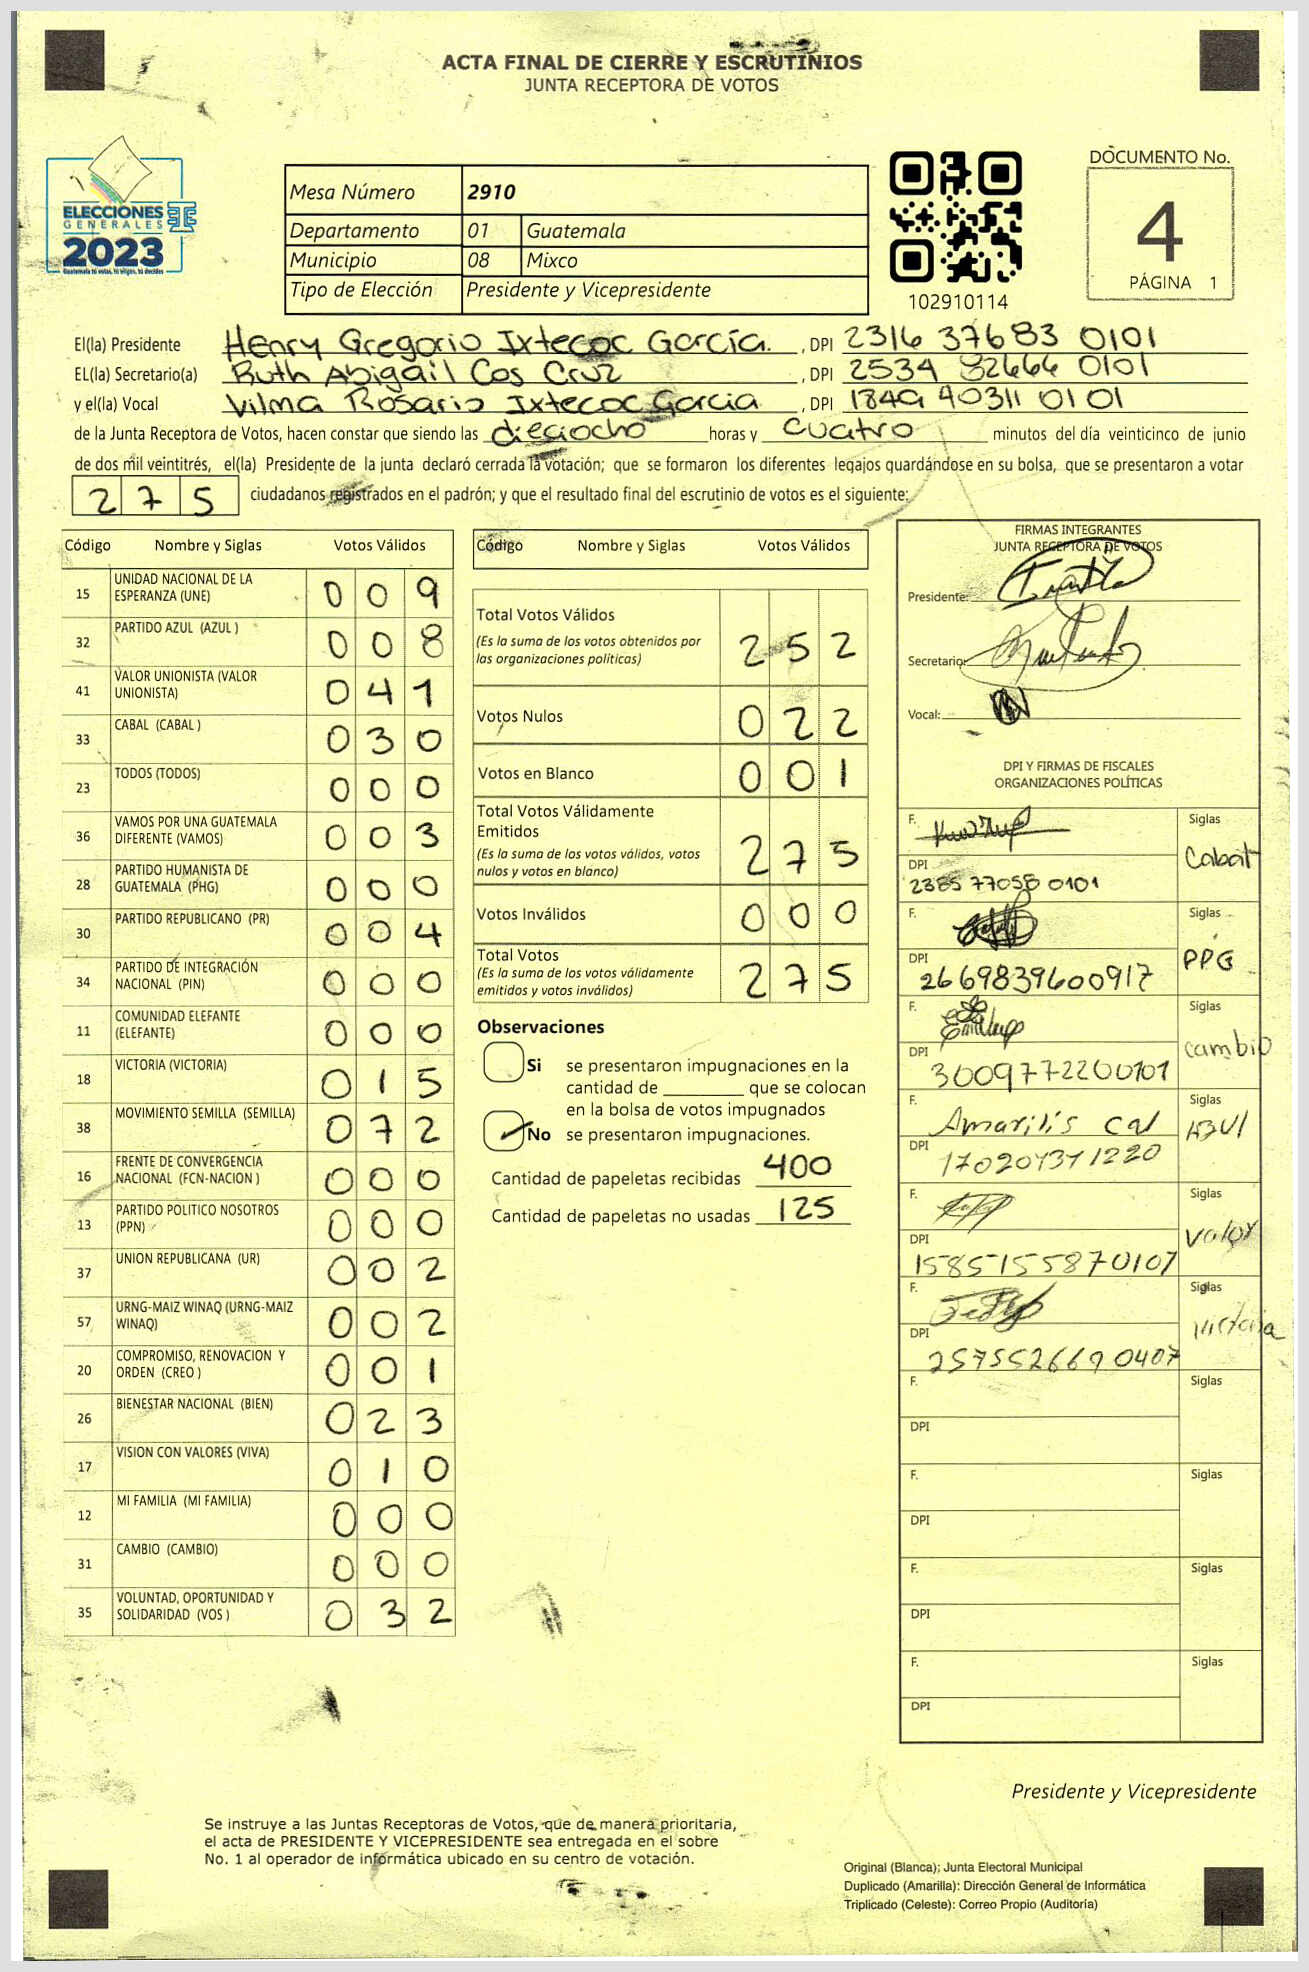 ACTA FINAL DE CIERRE Y ESCRUTINIOS
JUNTA RECEPTORA DE VOTOS
ELECCIONES
GENERALES
2023
Guatemala tú votas, tú eliges, tú decides
Mesa Número 2910
Departamento 01 Guatemala
Municipio 08 Mixco
Tipo de Elección Presidente y Vicepresidente
102910114
DOCUMENTO No.
4
PÁGINA 1
El(la) Presidente Henry Gregorio Ixtecoc García. , DPI 2316 37683 0101
EL(la) Secretario(a) Ruth Abigail Cos Cruz , DPI 2534 82666 0101
y el(la) Vocal Vilma Rosario Ixtecoc Garcia , DPI 1849 40311 0101
de la Junta Receptora de Votos, hacen constar que siendo las dieciocho horas y cuatro minutos del día veinticinco de junio
de dos mil veintitrés, el(la) Presidente de la junta declaró cerrada la votación; que se formaron los diferentes legajos guardándose en su bolsa, que se presentaron a votar
275 ciudadanos registrados en el padrón; y que el resultado final del escrutinio de votos es el siguiente:
Código Nombre y Siglas Votos Válidos
15 UNIDAD NACIONAL DE LA ESPERANZA (UNE) 009
32 PARTIDO AZUL (AZUL ) 008
41 VALOR UNIONISTA (VALOR UNIONISTA) 041
33 CABAL (CABAL ) 030
23 TODOS (TODOS) 000
36 VAMOS POR UNA GUATEMALA DIFERENTE (VAMOS) 003
28 PARTIDO HUMANISTA DE GUATEMALA (PHG) 000
30 PARTIDO REPUBLICANO (PR) 004
34 PARTIDO DE INTEGRACIÓN NACIONAL (PIN) 000
11 COMUNIDAD ELEFANTE (ELEFANTE) 000
18 VICTORIA (VICTORIA) 015
38 MOVIMIENTO SEMILLA (SEMILLA) 072
16 FRENTE DE CONVERGENCIA NACIONAL (FCN-NACION ) 000
13 PARTIDO POLITICO NOSOTROS (PPN) 000
37 UNION REPUBLICANA (UR) 002
57 URNG-MAIZ WINAQ (URNG-MAIZ WINAQ) 002
20 COMPROMISO, RENOVACION Y ORDEN (CREO ) 001
26 BIENESTAR NACIONAL (BIEN) 023
17 VISION CON VALORES (VIVA) 010
12 MI FAMILIA (MI FAMILIA) 000
31 CAMBIO (CAMBIO) 000
35 VOLUNTAD, OPORTUNIDAD Y SOLIDARIDAD (VOS ) 032
Código Nombre y Siglas Votos Válidos
Total Votos Válidos 252
(Es la suma de los votos obtenidos por
las organizaciones políticas)
Votos Nulos 022
Votos en Blanco 001
Total Votos Válidamente
Emitidos 275
(Es la suma de los votos válidos, votos
nulos y votos en blanco)
Votos Inválidos 000
Total Votos 275
(Es la suma de los votos válidamente
emitidos y votos inválidos)
Observaciones
Si se presentaron impugnaciones en la
cantidad de ________ que se colocan
en la bolsa de votos impugnados
No se presentaron impugnaciones.
Cantidad de papeletas recibidas 400
Cantidad de papeletas no usadas 125
FIRMAS INTEGRANTES
JUNTA RECEPTORA DE VOTOS
Presidente:
Secretario:
Vocal:
DPI Y FIRMAS DE FISCALES
ORGANIZACIONES POLÍTICAS
F. Siglas
Cabal
DPI
2385 77058 0101
F. Siglas
PPG
DPI
2669839600917
F. Siglas
cambio
DPI
3009772200101
F. Siglas
Amarilis cal AZUl
DPI
1702043411220
F. Siglas
valor
DPI
1585155870107
F. Siglas
victoria
DPI
2575526690407
F. Siglas
DPI
F. Siglas
DPI
F. Siglas
DPI
F. Siglas
DPI
Presidente y Vicepresidente
Se instruye a las Juntas Receptoras de Votos, que de manera prioritaria,
el acta de PRESIDENTE Y VICEPRESIDENTE sea entregada en el sobre
No. 1 al operador de informática ubicado en su centro de votación.
Original (Blanca); Junta Electoral Municipal
Duplicado (Amarilla): Dirección General de Informática
Triplicado (Celeste): Correo Propio (Auditoría)